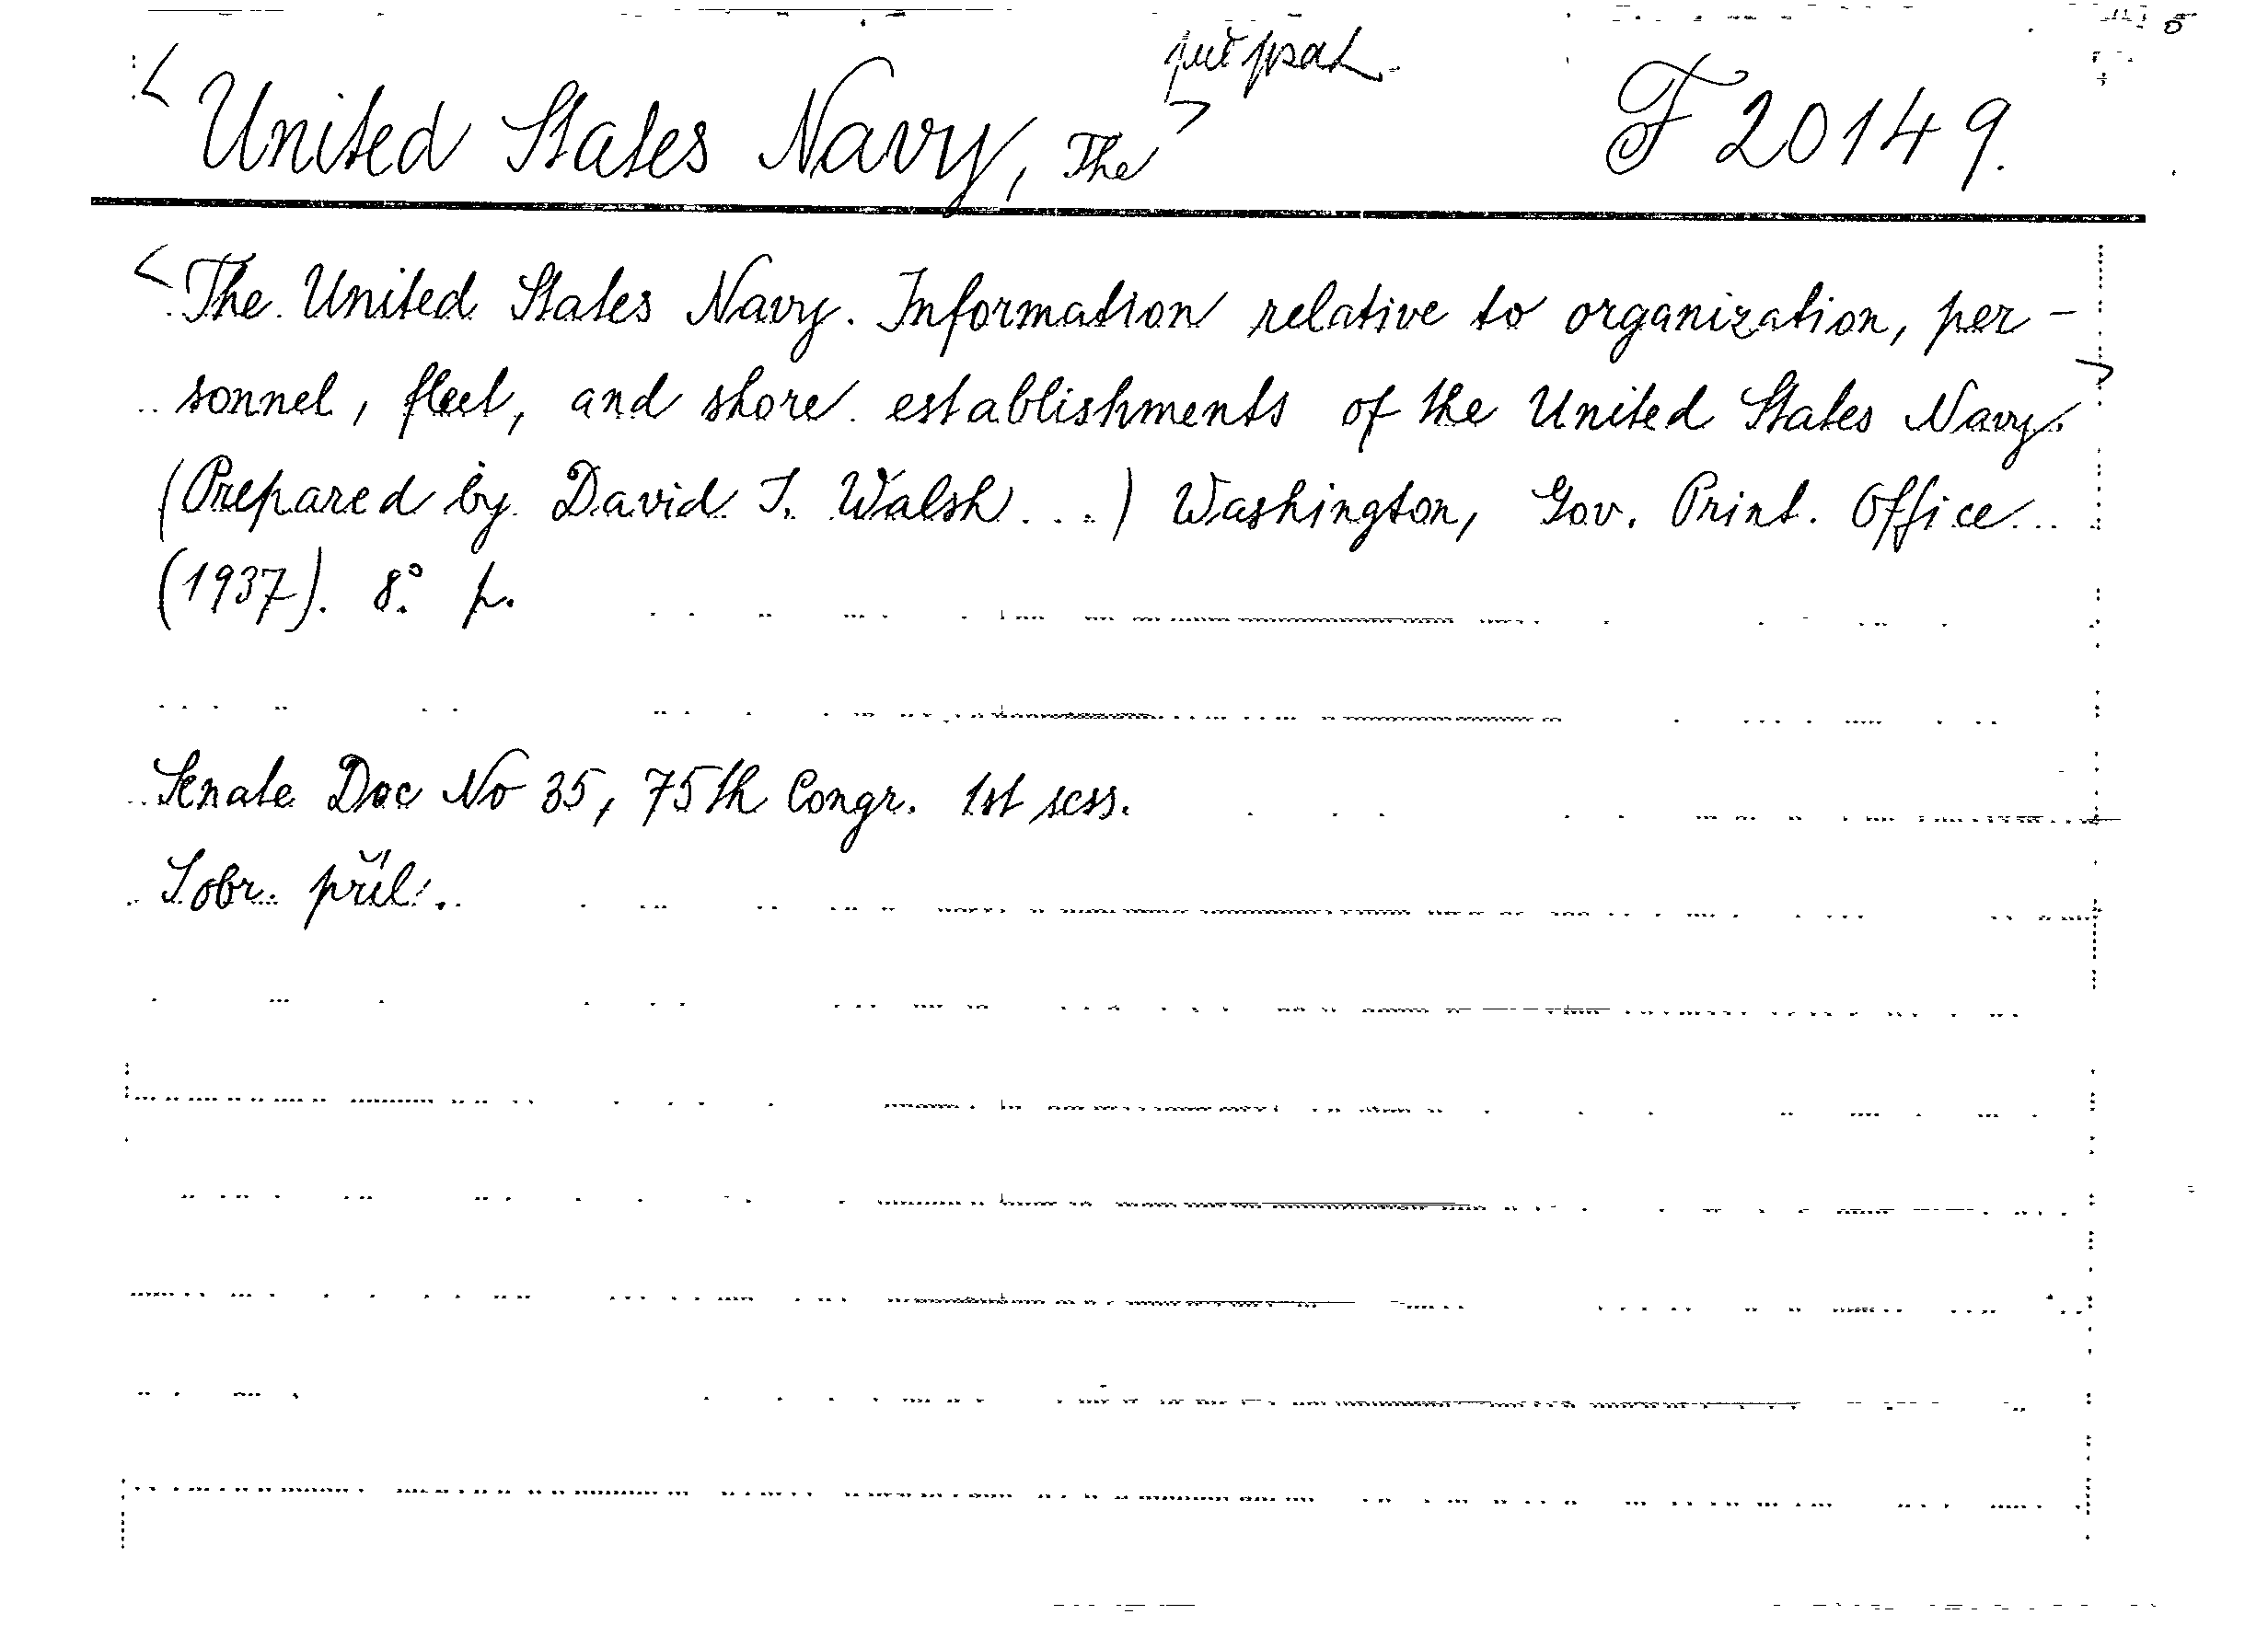 přepsat.
<United States Navy, The> F 20149.
<The United States Navy. Information relative to organization, per-
sonnel, fleet, and shore establishments of the United States Navy.>
(Prepared by David I. Walsh...) Washington, Gov. Print. Office...
(1937). 8° p.
Senate Doc No 35, 75th Congr. 1st sess.
S obr. příl.